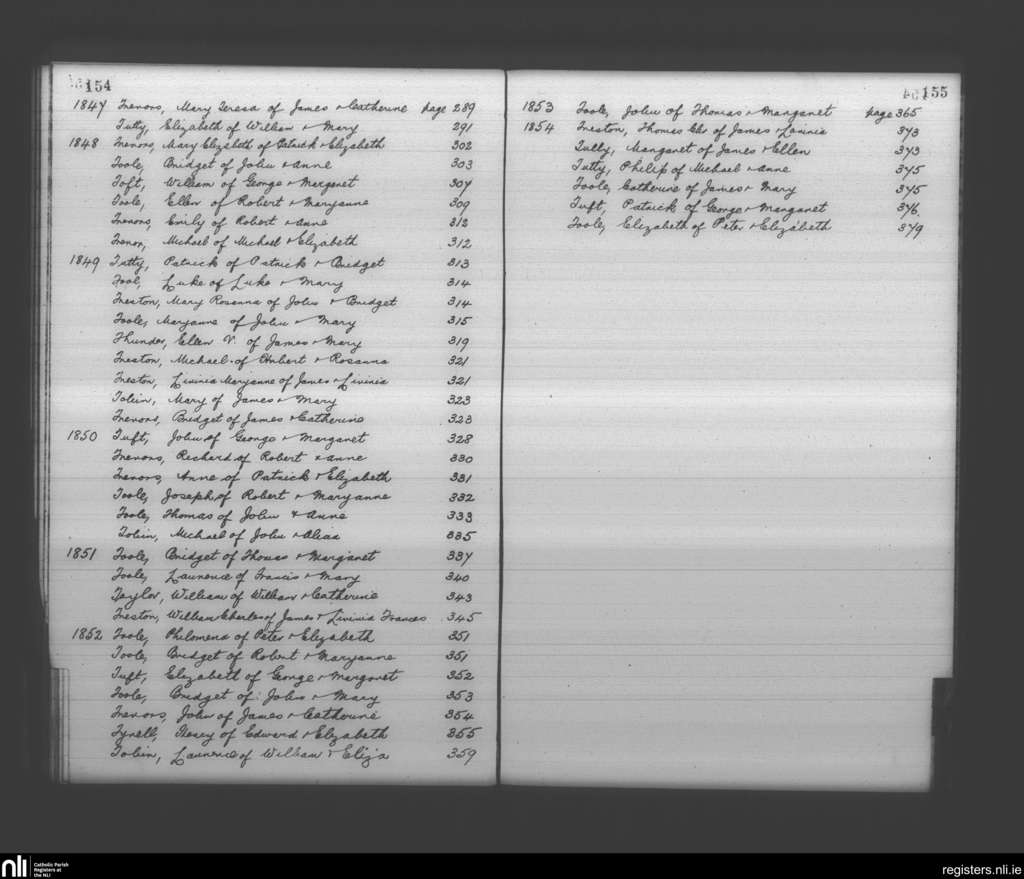 154
1847 Trevors, Mary Teresa of James & Catherine page 289
Tutty, Elizabeth of William & Mary 291
1848 Trevors, Mary Elizabeth of Patrick & Elizabeth 302
Toole, Bridget of John & Anne 303
Toft, William of George & Margaret 307
Toole, Ellen of Robert & Maryanne 309
Trevors, Emily of Robert & Anne 312
Trevor, Michael of Michael & Elizabeth 312
1849 Tutty, Patrick of Patrick & Bridget 313
Tool, Luke of Luke & Mary 314
Treston, Mary Rosanna of John & Bridget 314
Toole, Maryanne of John & Mary 315
Thunder, Ellen V. of James & Mary 319
Treston, Michael of Hubert & Rosanna 321
Treston, Livinia Maryanne of James & Livinia 321
Tobin, Mary of James & Mary 323
Trevors, Bridget of James & Catherine 323
1850 Tuft, John of George & Margaret 328
Trevors, Richard of Robert & Anne 330
Trevors, Anne of Patrick & Elizabeth 331
Toole, Joseph of Robert & Maryanne 332
Toole, Thomas of John & Anne 333
Tobin, Michael of John & Alice 335
1851 Toole, Bridget of Thomas & Margaret 337
Toole, Laurence of Francis & Mary 340
Taylor, William of William & Catherine 343
Treston, William Charles of James & Livinia Frances 345
1852 Toole, Philomena of Peter & Elizabeth 351
Toole, Bridget of Robert & Maryanne 351
Tuft, Elizabeth of George & Margaret 352
Toole, Bridget of John & Mary 353
Trevors, John of James & Catherine 354
Tyrell, Henry of Edward & Elizabeth 355
Tobin, Laurence of William & Eliza 359
155
1853 Toole, John of Thomas & Margaret page 365
1854 Treston, Thomas Chr. of James & Lavinia 373
Tully, Margaret of James & Ellen 373
Tutty, Philip of Michael & Anne 375
Toole, Catherine of James & Mary 375
Tuft, Patrick of George & Margaret 376.
Toole, Elizabeth of Peter & Elizabeth 379
nli Catholic Parish
Registers at
the NLI
registers.nli.ie